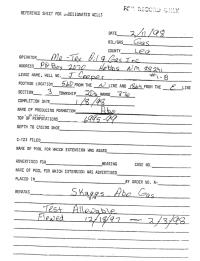 FOR RECORD ONLY
REFERENCE SHEET FOR UNDESIGNATED WELLS
DATE 2/11/98
OIL/GAS Gas
COUNTY Lea
OPERATOR Me-Tex Oil & Gas Inc
ADDRESS PO Box 2070 Hobbs NM 88241
LEASE NAME, WELL NO. J Cooper #1-B
FOOTAGE LOCATION FROM THE N LINE AND FROM THE E LINE
SECTION TOWNSHIP 20s RANGE 37e
COMPLETION DATE 1/8/98
NAME OF PRODUCING FORMATION Abo
TOP OF PERFORATIONS
DEPTH TO CASING SHOE
C-123 FILED
NAME OF POOL FOR WHICH EXTENSION WAS ASKED
ADVERTISED FOR HEARING CASE NO.
NAME OF POOL FOR WHICH EXTENSION WAS ADVERTISED
PLACED IN BY ORDER NO. R-
REMARKS Skaggs Abo Gas
Test Allowable
Flowed 12/19/97 - 2/3/98